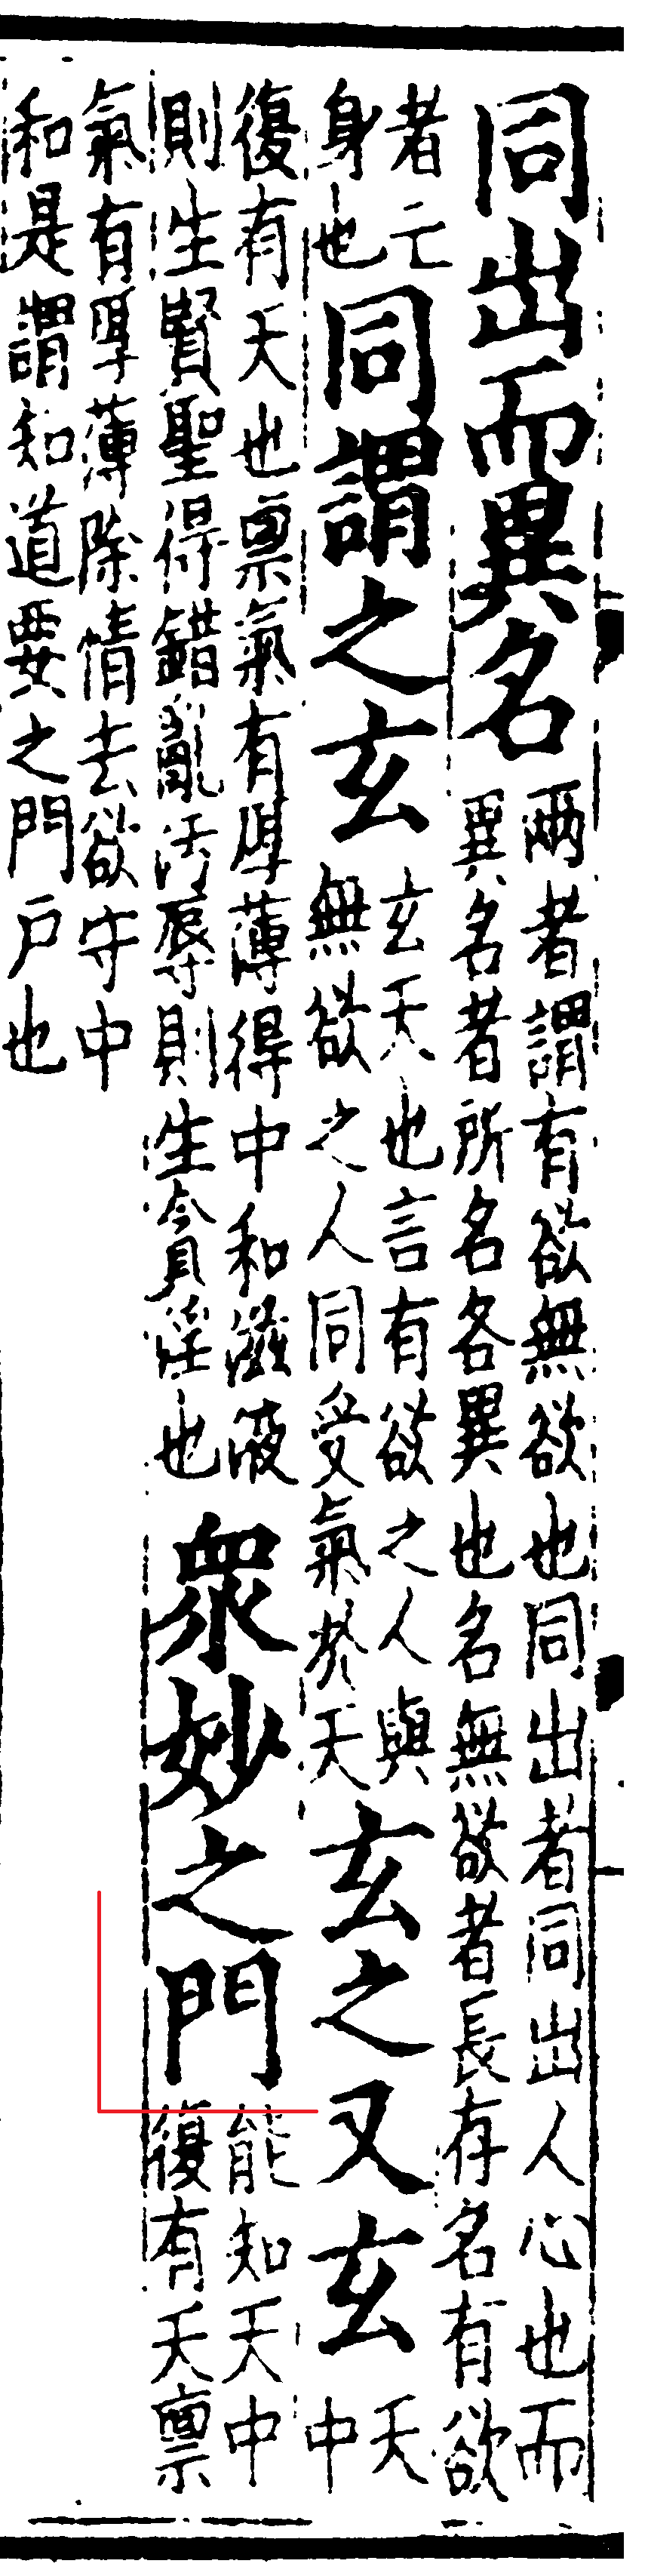 同出而異名
兩者謂有欲無欲也同出者同出人心也而
異名者所名各異也名無欲者長存名有欲
者亡
身也
同謂之玄
玄天也言有欲之人與
無欲之人同受氣於天
玄之又玄
天
中
復有天也稟氣有厚薄得中和滋液
則生賢聖得錯亂污辱則生貪淫也
衆妙之門
能知天中
復有天稟
氣有厚薄除情去欲守中
和是謂知道要之門戶也